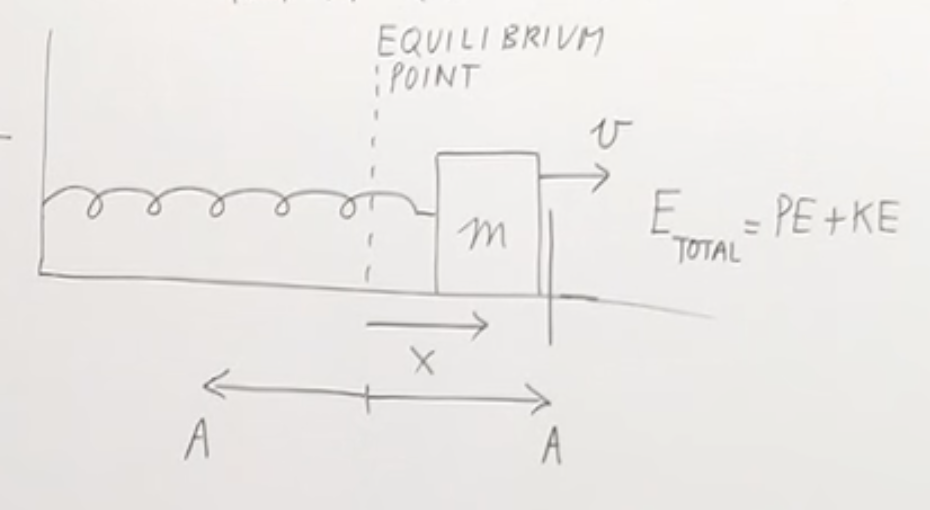 EQUILIBRIUM
POINT
v
m
E TOTAL = PE + KE
x
A
A